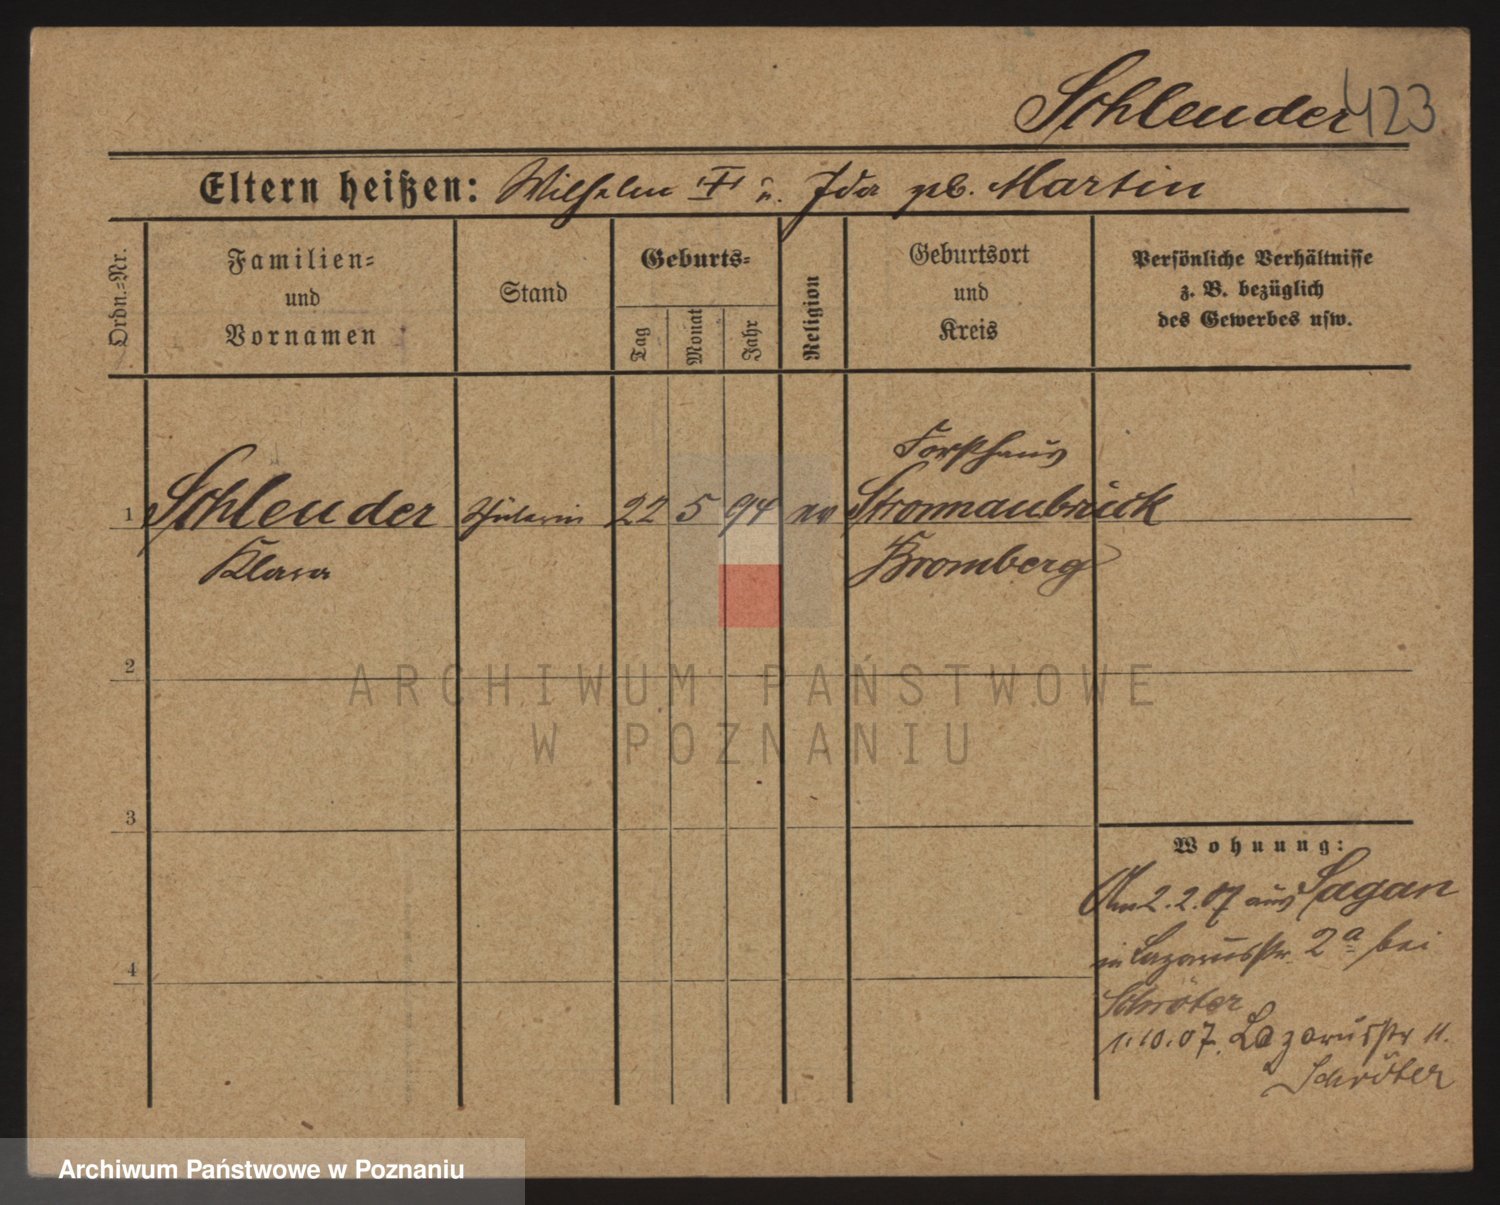 Schleuder 423
Eltern heißen: Wilhelm "I" u. Ida geb. Martin
Ordn.-Nr.
Familien-
und
Vornamen
Stand
Geburts-
Tag
Monat
Jahr
Religion
Geburtsort
und
Kreis
Persönliche Verhältnisse
z. B. bezüglich
des Gewerbes usw.
Forsthaus
1 Schleuder Schülerin 22 5 94 ev Stronnaubrück
Klara Bromberg
2
3
4
Wohnung:
Am 2.2.07 aus Sagan
in Lazarusstr. 2a bei
Schröter
1.10.07. Lazarusstr 11.
Schröter
ARCHIWUM PAŃSTWOWE
W POZNANIU
Archiwum Państwowe w Poznaniu